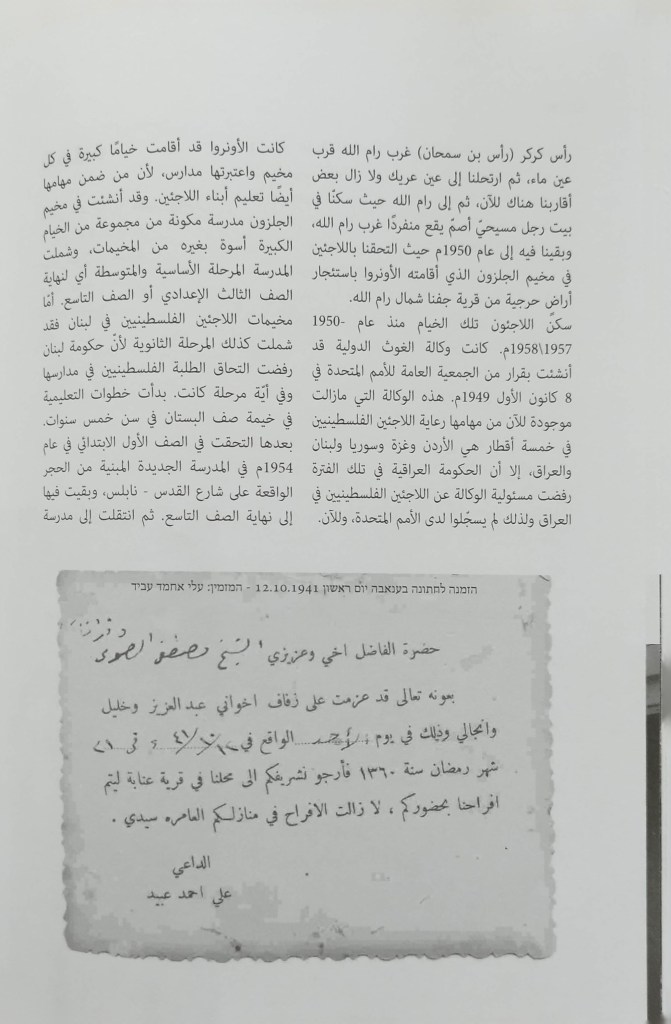 رأس كركر (رأس بن سمحان) غرب رام الله قرب
عين ماء، ثم ارتحلنا إلى عين عريك ولا زال بعض
أقاربنا هناك للآن، ثم إلى رام الله حيث سكنّا في
بيت رجل مسيحيّ أصمّ يقع منفردًا غرب رام الله،
وبقينا فيه إلى عام 1950م حيث التحقنا باللاجئين
في مخيم الجلزون الذي أقامته الأونروا باستئجار
أراضٍ حرجية من قرية جفنا شمال رام الله.
سكن اللاجئون تلك الخيام منذ عام 1950-
1957\1958م. كانت وكالة الغوث الدولية قد
أنشئت بقرار من الجمعية العامة للأمم المتحدة في
8 كانون الأول 1949م. هذه الوكالة التي مازالت
موجودة للآن من مهامها رعاية اللاجئين الفلسطينيين
في خمسة أقطار هي الأردن وغزة وسوريا ولبنان
والعراق، إلا أن الحكومة العراقية في تلك الفترة
رفضت مسئولية الوكالة عن اللاجئين الفلسطينيين في
العراق ولذلك لم يسجّلوا لدى الأمم المتحدة، وللآن.
كانت الأونروا قد أقامت خيامًا كبيرة في كل
مخيم واعتبرتها مدارس، لأن من ضمن مهامها
أيضًا تعليم أبناء اللاجئين. وقد أنشئت في مخيم
الجلزون مدرسة مكونة من مجموعة من الخيام
الكبيرة أسوة بغيره من المخيمات، وشملت
المدرسة المرحلة الأساسية والمتوسطة أي لنهاية
الصف الثالث الإعدادي أو الصف التاسع. أمّا
مخيمات اللاجئين الفلسطينيين في لبنان فقد
شملت كذلك المرحلة الثانوية لأنّ حكومة لبنان
رفضت التحاق الطلبة الفلسطينيين في مدارسها
وفي أيّة مرحلة كانت. بدأت خطوات التعليمية
في خيمة صف البستان في سن خمس سنوات.
بعدها التحقت في الصف الأول الابتدائي في عام
1954م في المدرسة الجديدة المبنية من الحجر
الواقعة على شارع القدس - نابلس، وبقيت فيها
إلى نهاية الصف التاسع. ثم انتقلت إلى مدرسة
הזמנה לחתונה בענאבה יום ראשון 12.10.1941 - המזמין: עלי אחמד עביד
حضرة الفاضل اخي وعزيزي الشيخ مصطفى
بعونه تعالى قد عزمت على زفاف اخواني عبد العزيز وخليل
وانجالي وذلك في يوم الواقع في ١٢/١٠/٤١
شهر رمضان سنة ١٣٦٠ فأرجو تشريفكم الى محلنا في قرية عنابة ليتم
افراحنا بحضوركم ، لا زالت الافراح في منازلكم العامره سيدي .
الداعي
علي احمد عبيد